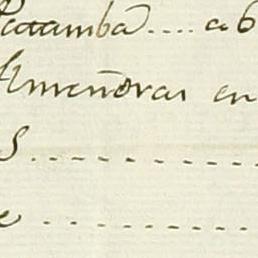 Catamba.... a 6
Almendras en
S..........
e..........